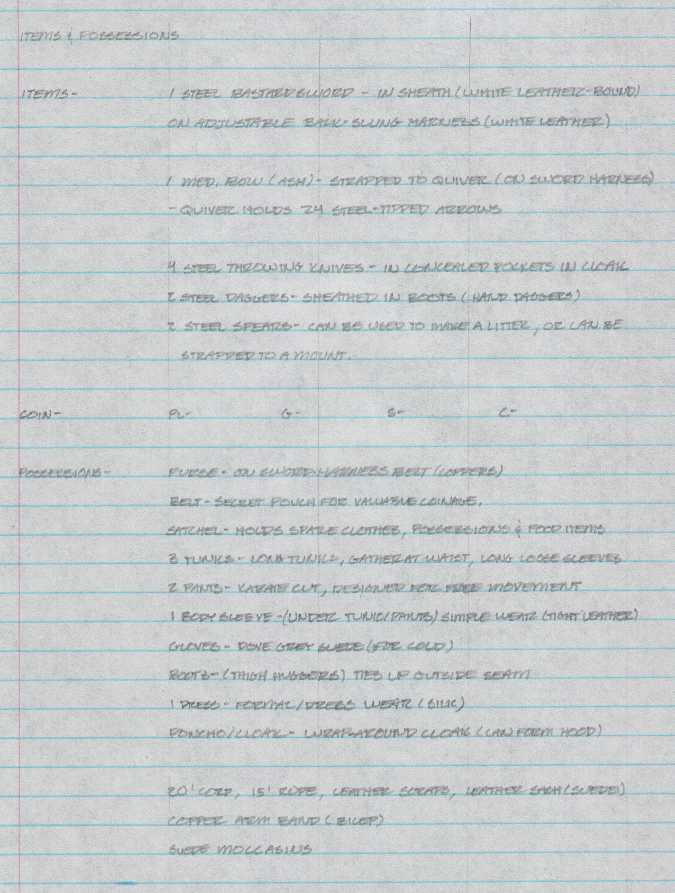 ITEMS & POSSESSIONS
ITEMS- 1 STEEL BASTARD SWORD - IN SHEATH (WHITE LEATHER-BOUND)
ON ADJUSTABLE BACK-SLUNG HARNESS (WHITE LEATHER)
1 MED. BOW (ASH)- STRAPPED TO QUIVER (ON SWORD HARNESS)
- QUIVER HOLDS 24 STEEL-TIPPED ARROWS
4 STEEL THROWING KNIVES - IN CONCEALED POCKETS IN CLOAK
2 STEEL DAGGERS- SHEATHED IN BOOTS (HAND DAGGERS)
2 STEEL SPEARS- CAN BE USED TO MAKE A LITTER, OR CAN BE
STRAPPED TO A MOUNT.
COIN- PL- G- S- C-
POSSESSIONS- PURSE- ON SWORD-HARNESS BELT (COPPERS)
BELT- SECRET POUCH FOR VALUABLE COINAGE.
SATCHEL- HOLDS SPARE CLOTHES, POSSESSIONS & FOOD ITEMS
3 TUNICS- LONG TUNICS, GATHER AT WAIST, LONG LOOSE SLEEVES
2 PANTS- KARATE CUT, DESIGNED FOR FREE MOVEMENT
1 BODY SLEEVE -(UNDER TUNIC/PANTS) SIMPLE WEAR (TIGHT LEATHER)
GLOVES- DOVE GREY SUEDE (FOR COLD)
BOOTS- (THIGH HUGGERS) TIES UP OUTSIDE SEAM
1 DRESS- FORMAL/DRESS WEAR (SILK)
PONCHO/CLOAK- WRAP-AROUND CLOAK (CAN FORM HOOD)
20' CORD, 15' ROPE, LEATHER SCRAPS, LEATHER SASH (SUEDE)
COPPER ARM BAND (BICEP)
SUEDE MOCCASINS